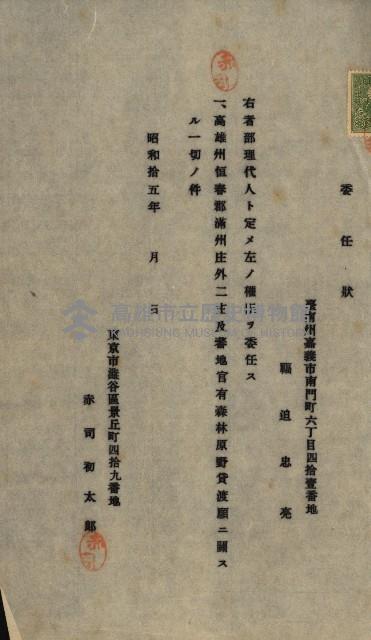 委任狀
臺南州嘉義市南門町六丁目四拾壹番地
福迫忠亮
右者部理代人ト定メ左ノ權限ヲ委任ス
一、高雄州恒春郡滿州庄外二庄及蕃地官有森林原野貸渡願ニ關ス
ル一切ノ件
昭和拾五年 月 日
東京市澁谷區景丘町四拾九番地
赤司初太郎
赤司
赤司
高雄市立歷史博物館
KAOHSIUNG MUSEUM OF HISTORY